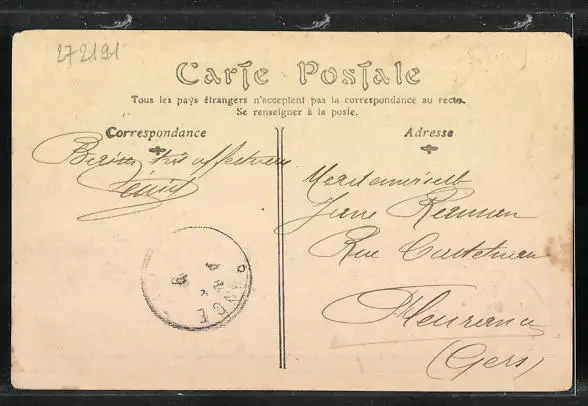 272191
Carte Postale
Tous les pays étrangers n'acceptent pas la correspondance au recto.
Se renseigner à la poste.
Correspondance
Adresse
Baisers très affectueux
Mademoiselle
Jane
Rue Castelnau
Fleurance
(Gers)